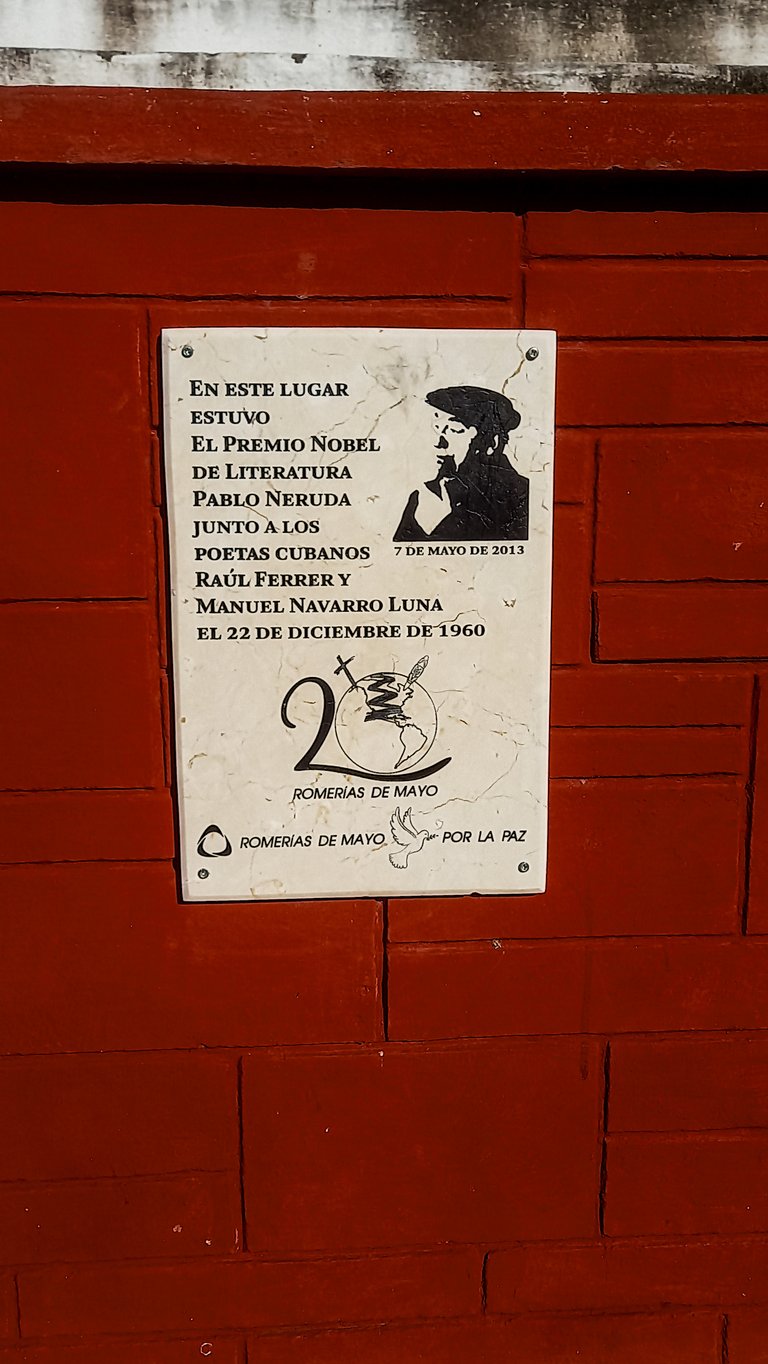 EN ESTE LUGAR
ESTUVO
EL PREMIO NOBEL
DE LITERATURA
PABLO NERUDA
JUNTO A LOS
POETAS CUBANOS
RAÚL FERRER Y
MANUEL NAVARRO LUNA
EL 22 DE DICIEMBRE DE 1960
7 DE MAYO DE 2013
20
ROMERÍAS DE MAYO
ROMERÍAS DE MAYO POR LA PAZ